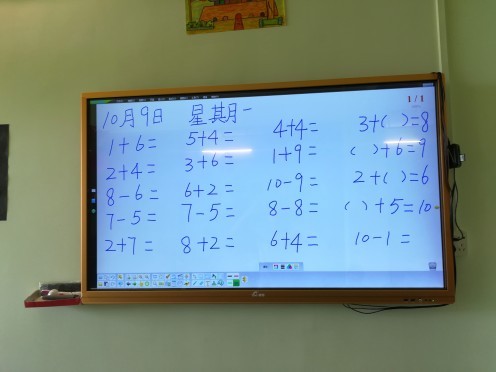 10月9日 星期一
1+6= 5+4= 4+4= 3+( )=8
2+4= 3+6= 1+9= ( )+6=9
8-6= 6+2= 10-9= 2+( )=6
7-5= 7-5= 8-8= ( )+5=10
2+7= 8+2= 6+4= 10-1=
1/1